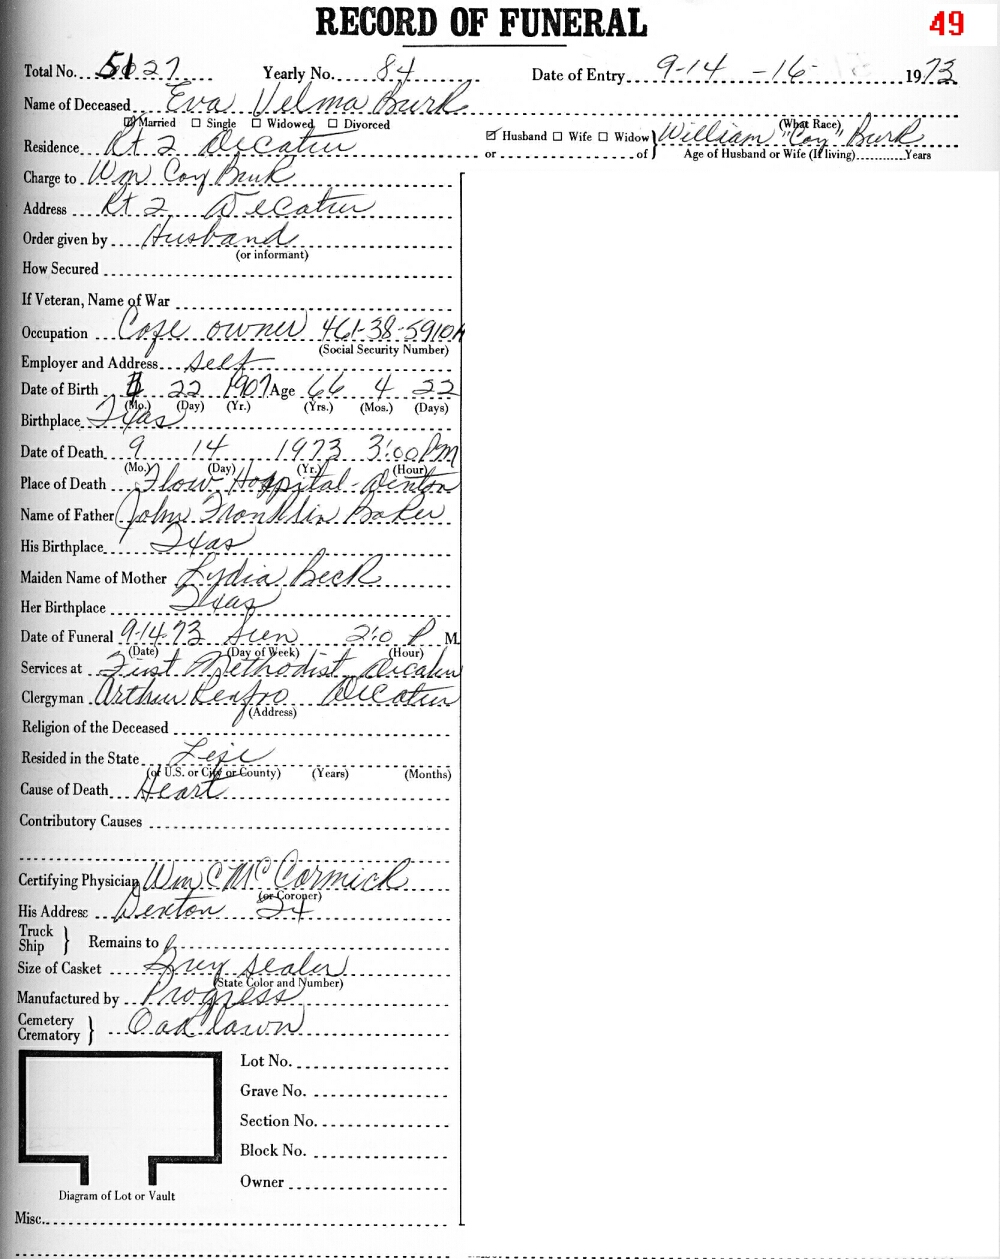 RECORD OF FUNERAL
49
Total No. 5127 Yearly No. 84 Date of Entry 9-14-16- 1973
Name of Deceased Eva Velma Burk
☑ Married ☐ Single ☐ Widowed ☐ Divorced (What Race)
Residence Rt 2 Decatur ☑ Husband ☐ Wife ☐ Widow } William "Coy" Burk
or of } Age of Husband or Wife (If living) Years
Charge to Wm Coy Burk
Address Rt 2 Decatur
Order given by Husband
(or informant)
How Secured
If Veteran, Name of War
Occupation Cafe owner 461-38-5910A
(Social Security Number)
Employer and Address Self
Date of Birth 22 1907 Age 66 4 22
(Mo.) (Day) (Yr.) (Yrs.) (Mos.) (Days)
Birthplace Texas
Date of Death 9 14 1973 3:00 PM
(Mo.) (Day) (Yr.) (Hour)
Place of Death Flow Hospital - Denton
Name of Father John Franklin Baker
His Birthplace Texas
Maiden Name of Mother Lydia Beck
Her Birthplace Texas
Date of Funeral 9-14-73 Sun 2:0 P M.
(Date) (Day of Week) (Hour)
Services at First Methodist Decatur
Clergyman Arthur Renfro Decatur
(Address)
Religion of the Deceased
Resided in the State Life
(of U.S. or City or County) (Years) (Months)
Cause of Death Heart
Contributory Causes
Certifying Physician Wm C McCormick
(or Coroner)
His Address Denton
Truck
Ship } Remains to
Size of Casket Grey Sealer
(State Color and Number)
Manufactured by Progress
Cemetery
Crematory } Oaklawn
Lot No.
Grave No.
Section No.
Block No.
Owner
Diagram of Lot or Vault
Misc.